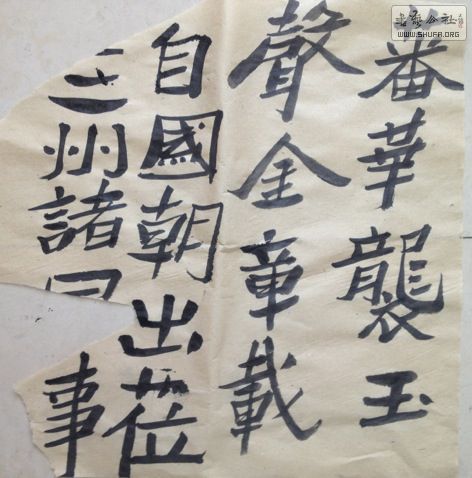 蕃華襲玉
聲金章載
自國朝出莅
三州諸事
書法公社
WWW.SHUFA.ORG